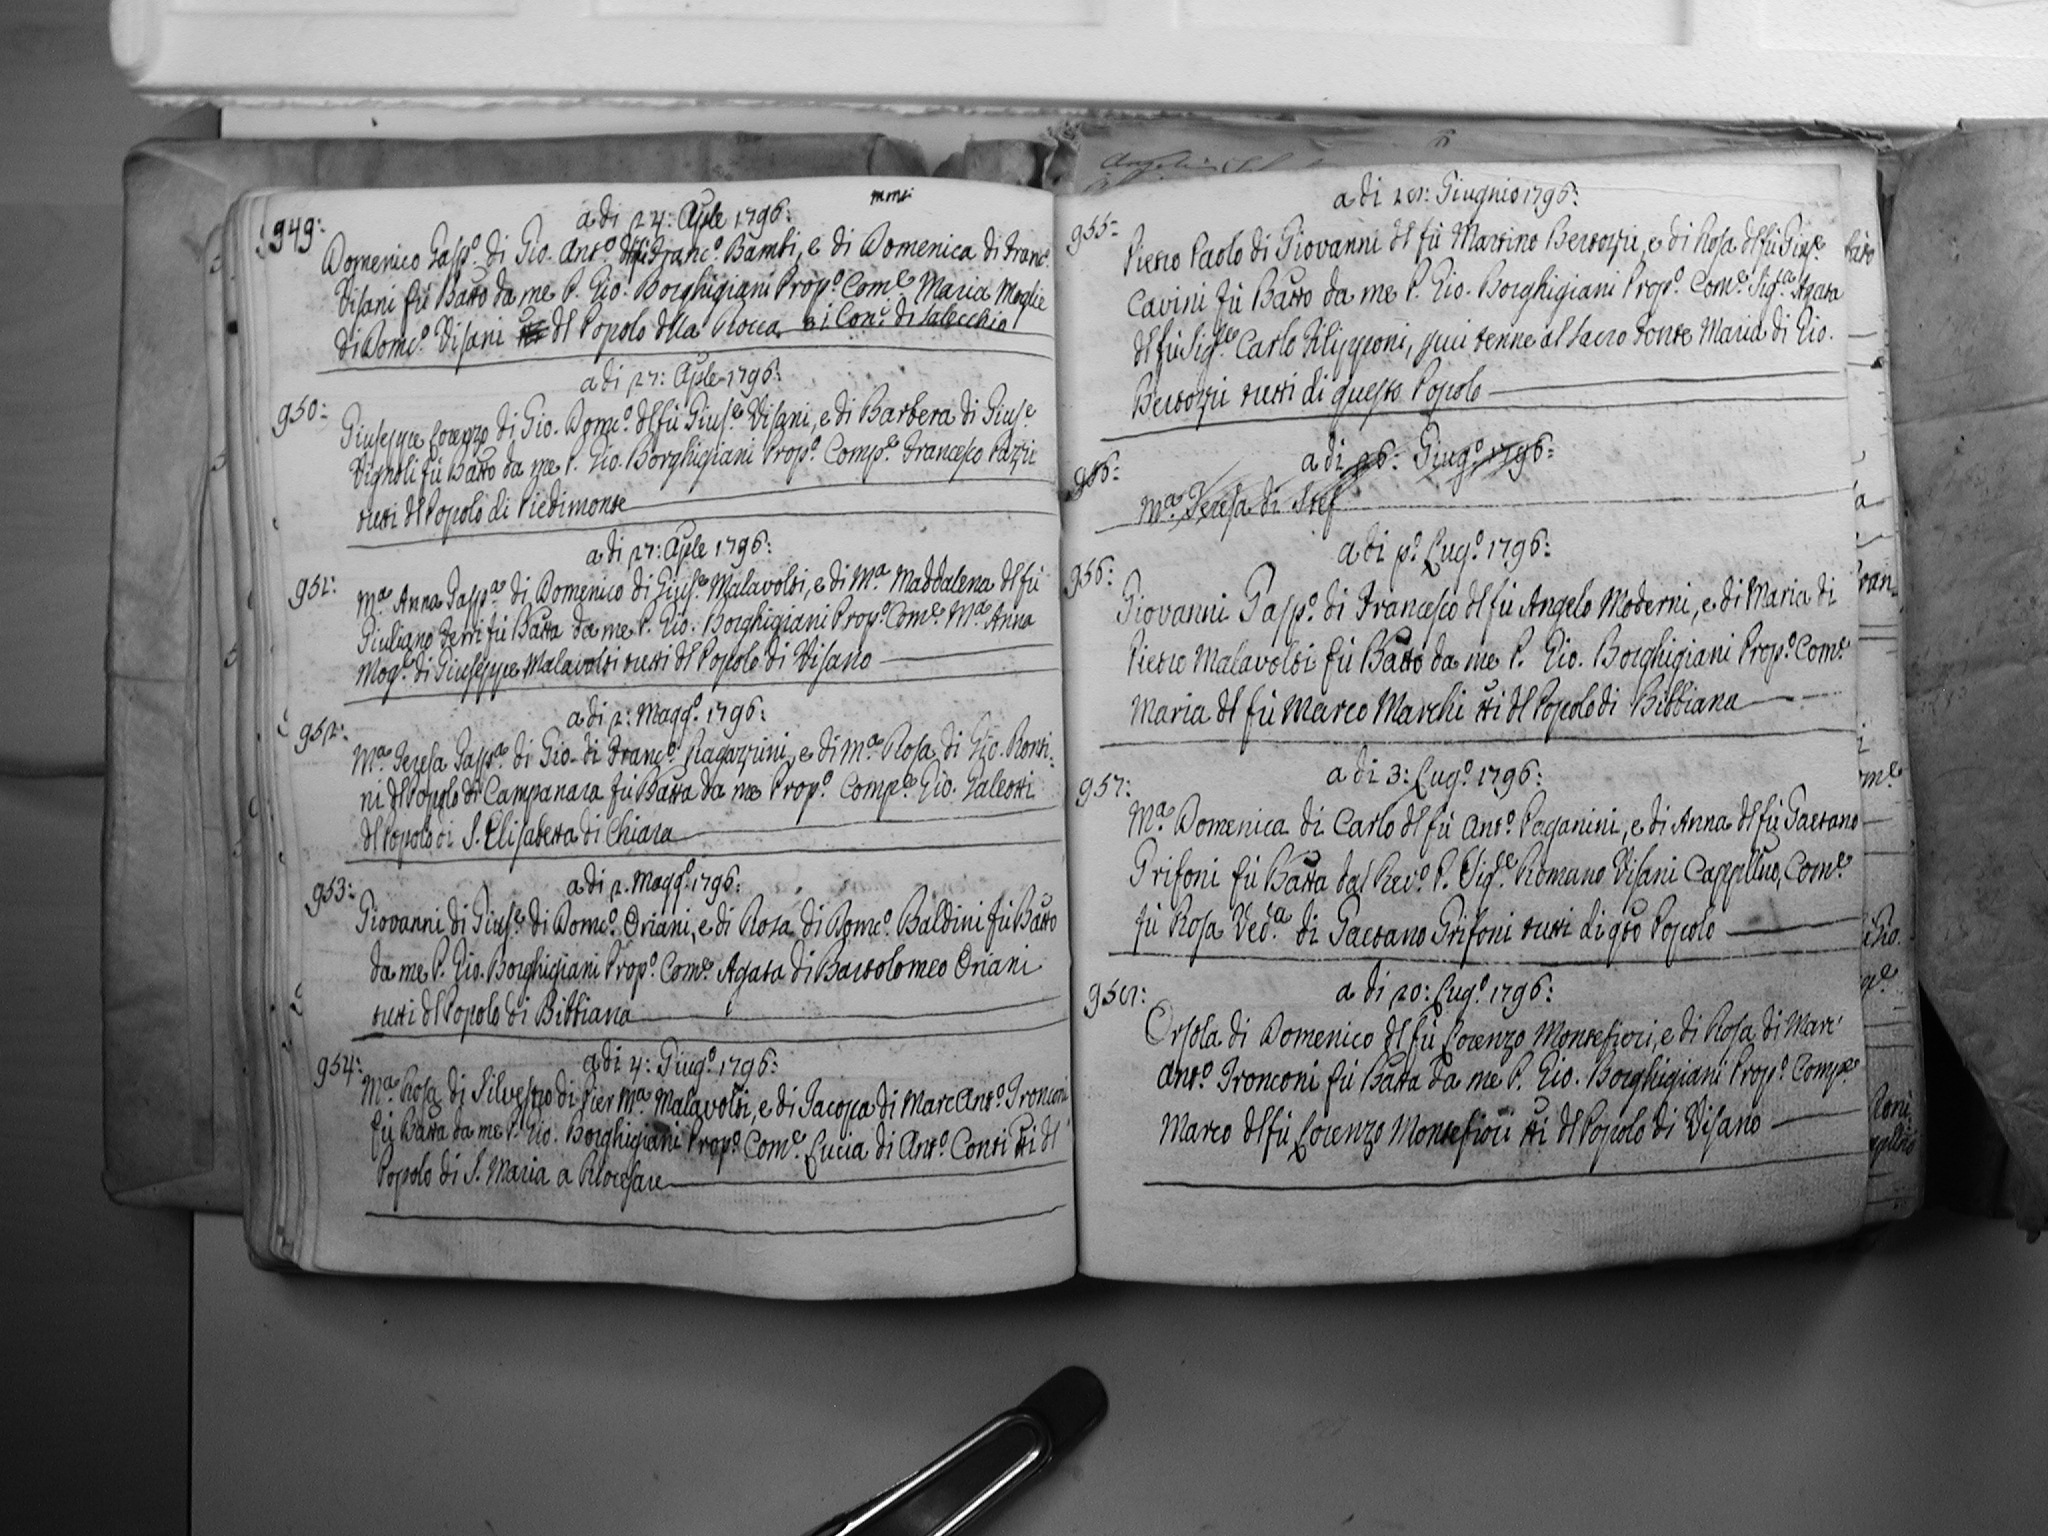 mmsi
949: a di 24: Aple 1796:
Domenico Gaspº. di Gio. Antº. dl fù Francº. Bambi, e di Domenica di Francº.
Visani fù Batto da me P. Gio. Borghigiani Propº. Comᵉ. Maria Moglie
di Domcº. Visani dl Popolo dlla Rocca
a di 27: Aple 1796:
950: Giuseppe Lorenzo di Gio. Domcº. dl fù Giusᵉ. Visani, e di Barbera di Giusᵉ
Vignoli fù Batto da me P. Gio. Borghigiani Propº. Compᵉ. Francesco Pazzi
tutti dl Popolo di Piedimonte
a di 27: Aple 1796:
951: Mᵃ. Anna Gaspᵃ. di Domenico di Giusᵉ. Malavolti, e di Mᵃ. Maddalena dl fù
Giuliano Ferri fù Batta da me P. Gio. Borghigiani Propº. Comᵉ. Mᵃ. Anna
Mogᵉ. di Giuseppe Malavolti tutti dl Popolo di Visano
a di 2: Maggº. 1796:
952: Mᵃ. Teresa Gaspᵃ. di Gio. di Francº. Ragazzini, e di Mᵃ. Rosa di Gio. Ronti:
ni dl Popolo di Campanara fù Batta da me Propº. Compᵉ. Gio. Galeotti
dl Popolo di S. Elisabetta di Chiara
a di 2. Maggº. 1796:
953: Giovanni di Giusᵉ. di Domcº. Oriani, e di Rosa di Domcº. Baldini fù Batto
da me P. Gio. Borghigiani Propº. Comᵉ. Agata di Bartolomeo Oriani
tutti dl Popolo di Bibbiana
a di 4: Giugº. 1796:
954: Mᵃ. Rosa di Silvestro di Pier Mᵃ. Malavolti, e di Jacopa di Marc Antº. Tronconi
fù Batta da me P. Gio. Borghigiani Propº. Comᵉ. Lucia di Antº. Conti tti dl
Popolo di S. Maria a
a di Giugnio 1796:
955: Pietro Paolo di Giovanni dl fù Martino Bertozzi, e di Rosa dl fù Giusᵉ.
Cavini fù Batto da me P. Gio. Borghigiani Propº. Comᵉ. Sigᵃ. Agata
dl fù Sigᵉ. Carlo Filipponi, qui tenne al Sacro Fonte Maria di Gio.
Bertozzi tutti di questo Popolo
a di 26: Giugº. 1796:
956: Mᵃ. Teresa di Stef
a di pº. Lugº. 1796:
956: Giovanni Gaspº. di Francesco dl fù Angelo Moderni, e di Maria di
Pietro Malavolti fù Batto da me P. Gio. Borghigiani Propº. Comᵉ.
Maria dl fù Marco Marchi tti dl Popolo di Bibbiana
a di 3: Lugº. 1796:
957: Mᵃ. Domenica di Carlo dl fù Antº. Paganini, e di Anna dl fù Gaetano
Grifoni fù Batta dal Revº. P. Sigᵉ. Romano Visani Cappllno, Comᵉ.
fù Rosa Vedᵃ. di Gaetano Grifoni tutti di qto Popolo
a di 20: Lugº. 1796:
958: Orsola di Domenico dl fù Lorenzo Montefiori, e di Rosa di Marc
Antº. Tronconi fù Batta da me P. Gio. Borghigiani Propº. Compᵉ.
Marco dl fù Lorenzo Montefiori tti dl Popolo di Visano